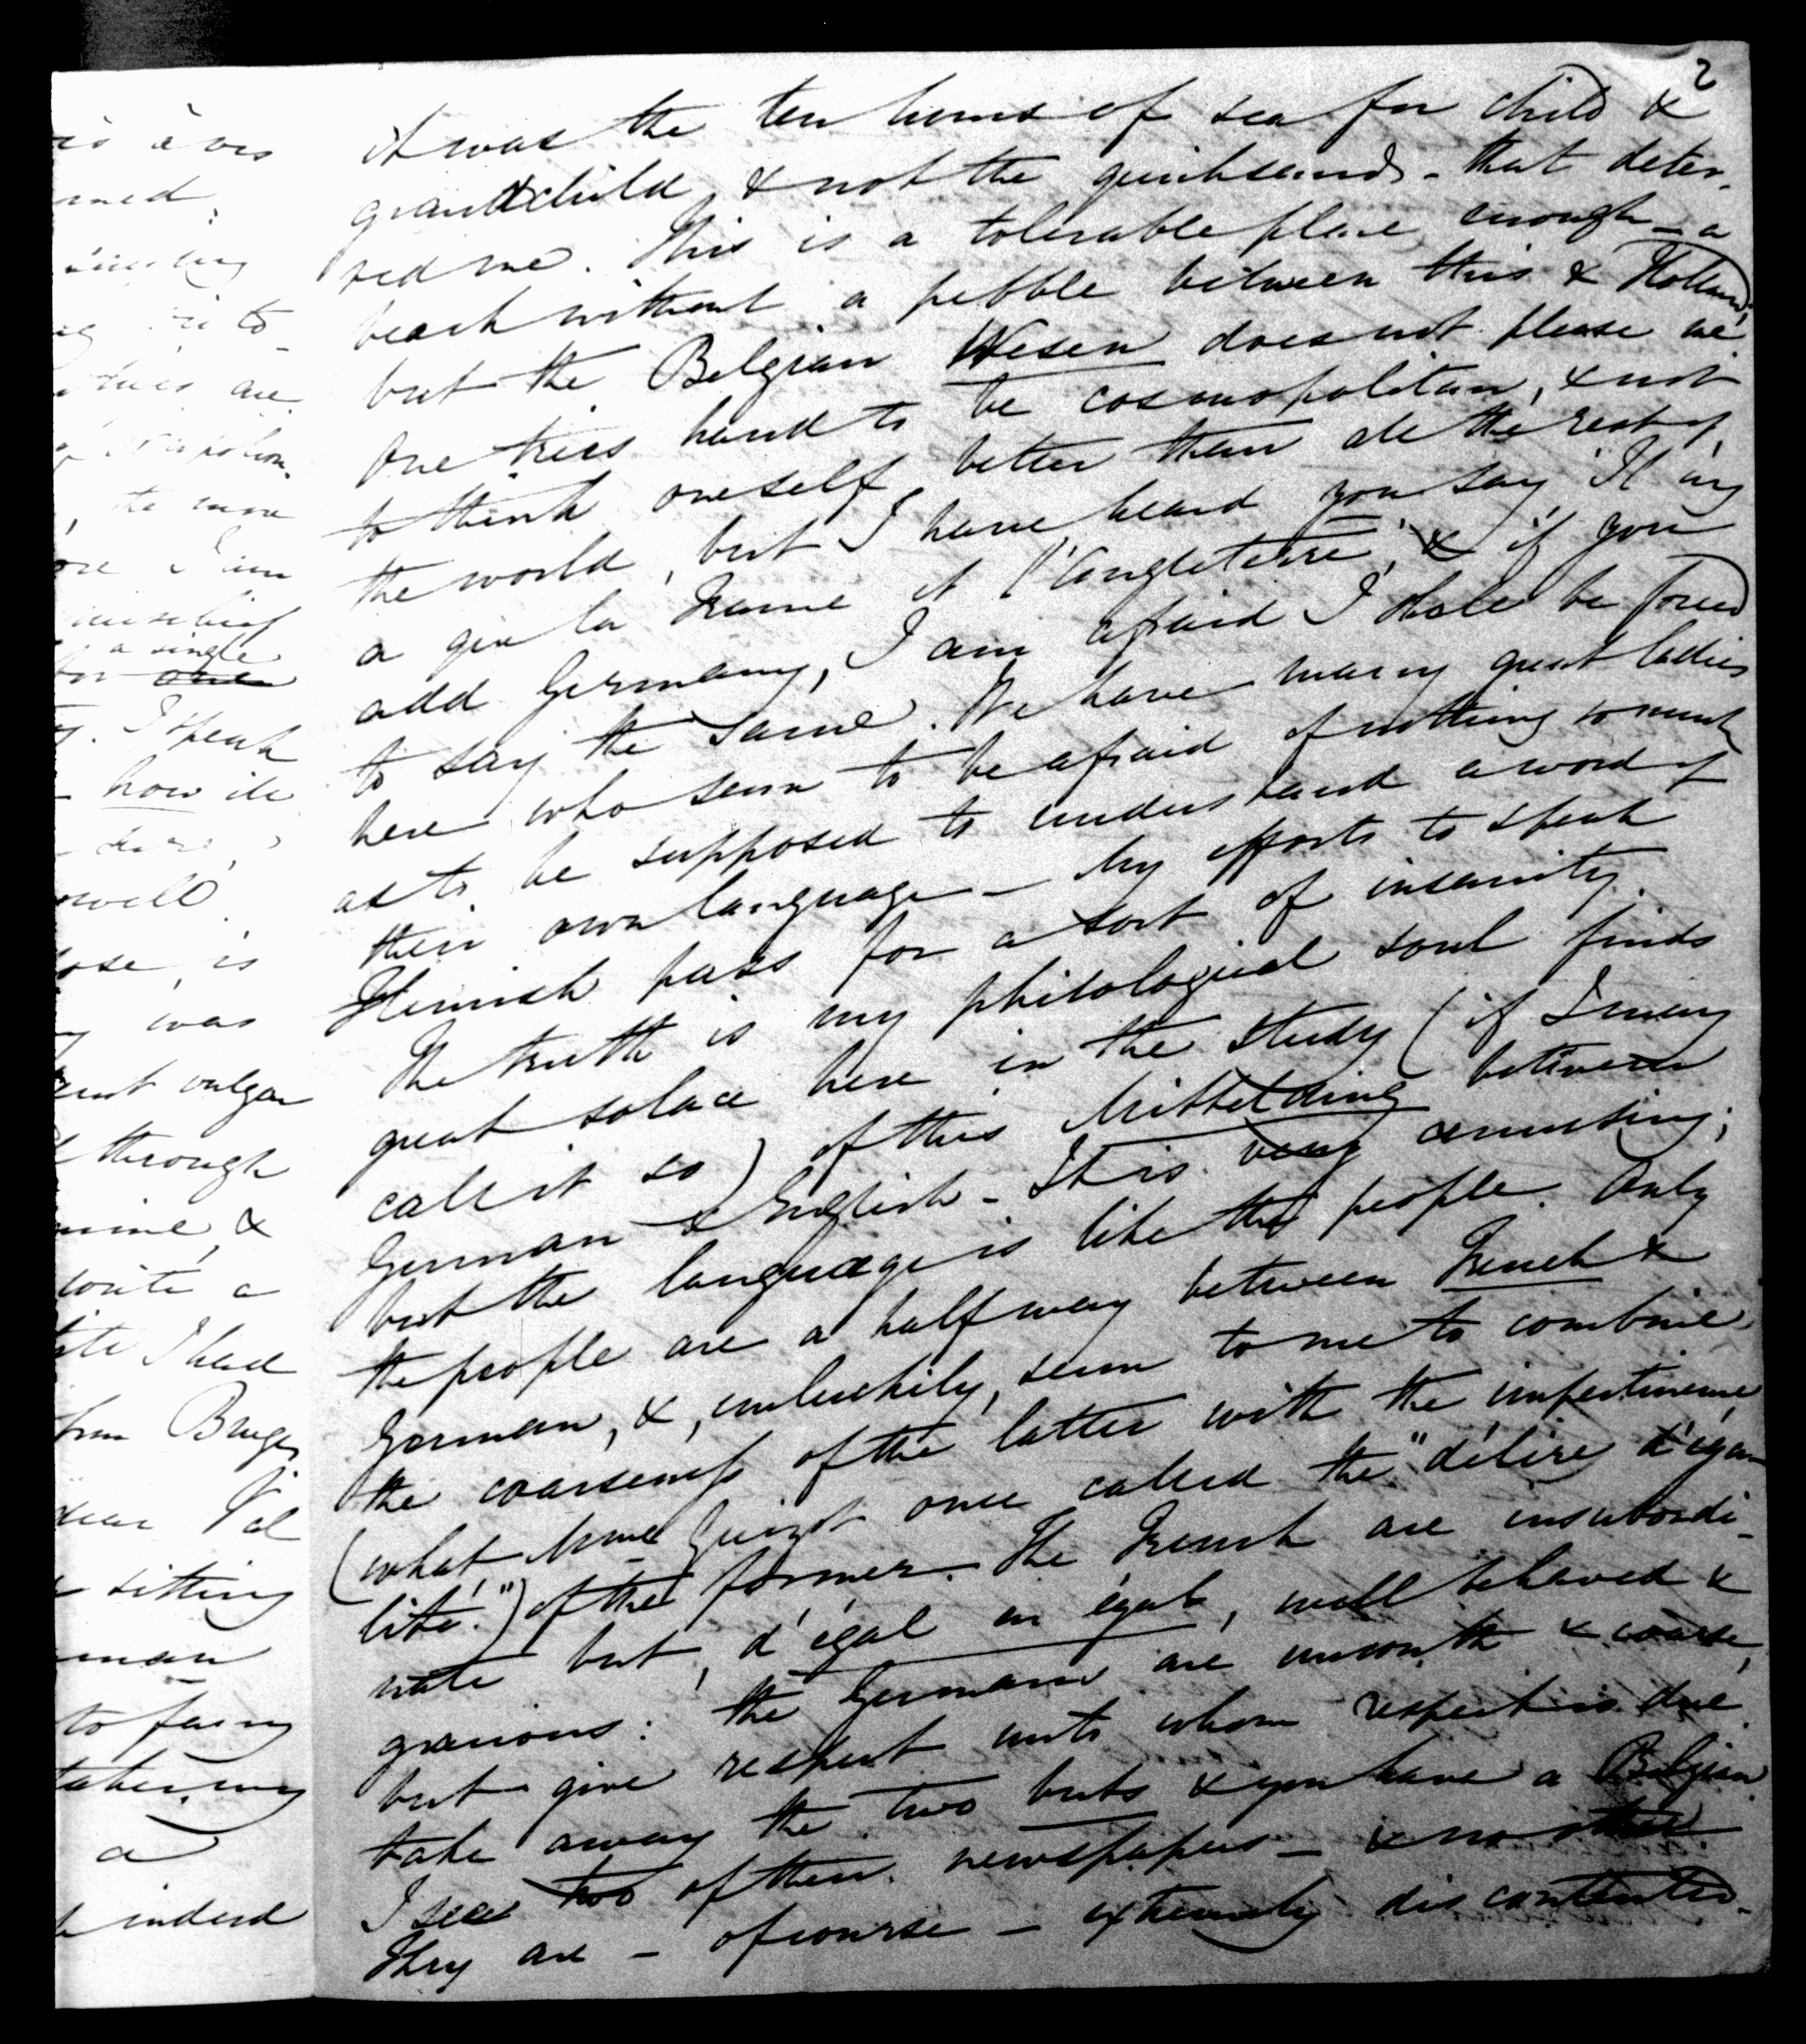 2
it was the ten hours of sea for child &
grandchild, & not the quicksands - that deter-
red me. This is a tolerable place enough - a
beach without a pebble between this & Holland;
but the Belgian Wesen does not please me
One tries hard to be cosmopolitan, & not
to think oneself better than all the rest of
the world, but I have heard you say "Il n'y
a que la France et l'Angleterre", & if you
add Germany, I am afraid I shall be forced
to say the same. We have many great ladies
here who seem to be afraid of nothing so much
as to be supposed to understand a word of
their own language - My efforts to speak
Flemish pass for a sort of insanity.
The truth is my philological soul finds
great solace here in the study (if I may
call it so) of this Mittelding between
German & English - It is very amusing;
but the language is like the people. Only
the people are a halfway between French &
German, &, unluckily, seem to me to combine
the coarseness of the latter with the impertinence
(what Mme Guizot once called the "délire d'éga-
lité.") of the former. The French are insubordi-
nate but, d'égal en égal, well behaved &
gracious: the Germans are uncouth & coarse,
but give respect unto whom respect is due.
take away the two buts & you have a Belgian
I see two of their newspapers - & no other
They are - of course - extremely discontented.
vis à vis
med.
are
Napoleon.
the more
I am
a single
one
I speak
how ill
is
was
vulgar
through
&
write a
I had
from Bruges
dear
sitting
man
to fancy
taken my
a
indeed